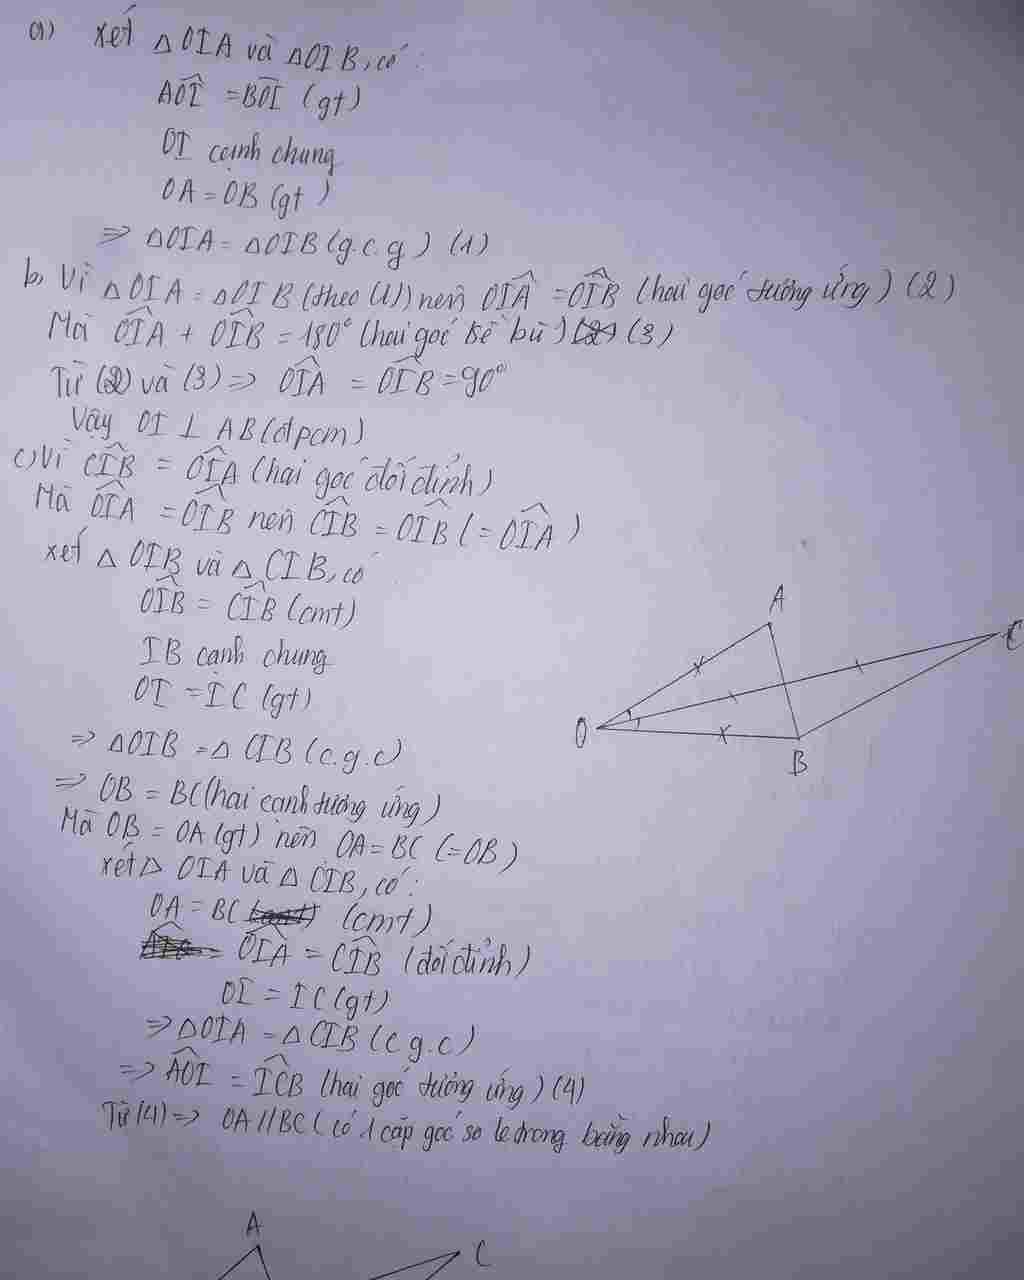 a) xét △OIA và △OIB, có:
AÔI = BÔI (gt)
OI cạnh chung
OA = OB (gt)
=> △OIA = △OIB (g.c.g) (1)
b, Vì △OIA = △OIB (theo (1)) nên OÎA = OÎB (hai góc tương ứng) (2)
Mà OÎA + OÎB = 180° (hai góc kề bù) (3)
Từ (2) và (3) => OÎA = OÎB = 90°
Vậy OI ⊥ AB (đpcm)
c) Vì CÎB = OÎA (hai góc đối đỉnh)
Mà OÎA = OÎB nên CÎB = OÎB (= OÎA)
xét △ OIB và △ CIB, có
OÎB = CÎB (cmt)
IB cạnh chung
OI = IC (gt)
=> △OIB = △ CIB (c.g.c)
=> OB = BC (hai cạnh tương ứng)
Mà OB = OA (gt) nên OA = BC (= OB)
xét △ OIA và △ CIB, có:
OA = BC (cmt)
OÎA = CÎB (đối đỉnh)
OI = IC (gt)
=> △OIA = △ CIB (c g.c)
=> AÔI = IĈB (hai góc tương ứng) (4)
Từ (4) => OA // BC (có 1 cặp góc so le trong bằng nhau)
A
C
O
B
A
C